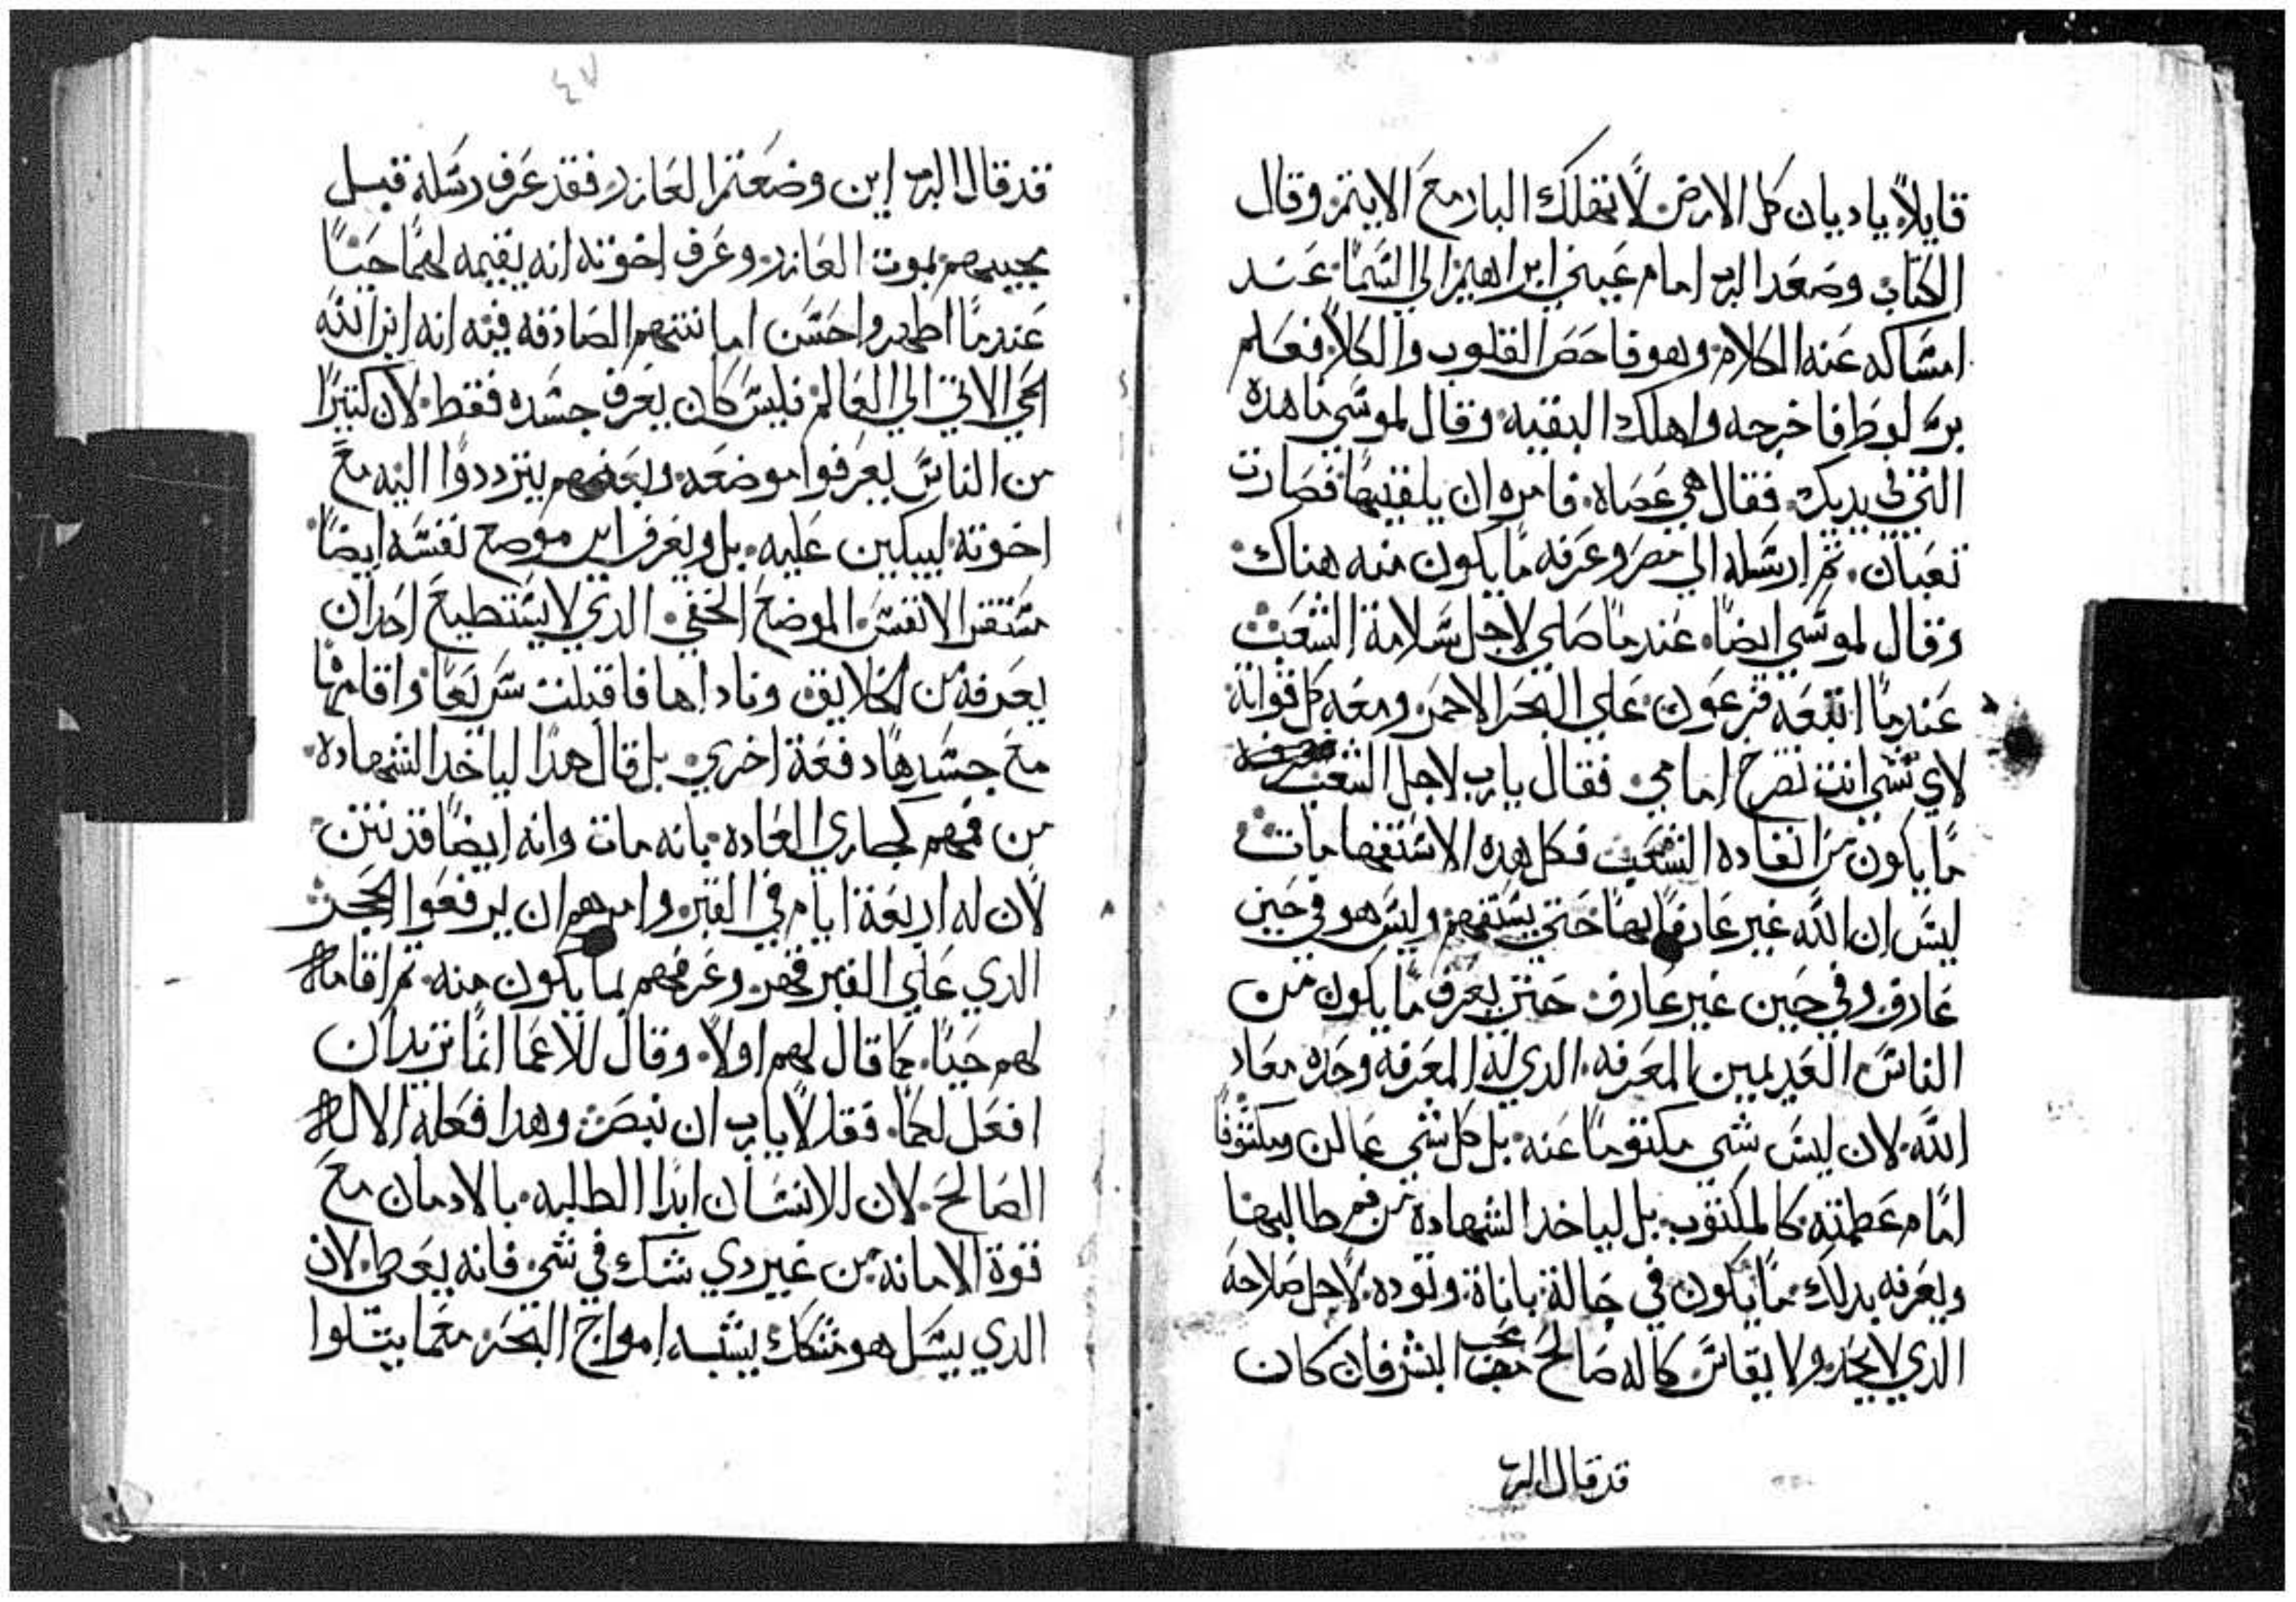 قايلاً يا ديان كل الارض لا تهلك البار مع الاثيم وقال
الكتاب وصعد الرب امام عيني ابراهيم الي السما عند
امساكه عنه الكلام وهو فاحص القلوب والكلا فعلم
بر لوط فاخرجه واهلك البقيه وقال لموسي ما هده
التي في يديك فقال هي عصاه فامره ان يلقيها فصارت
تعبان ثم ارسله الي مصر وعرفه ما يكون منه هناك
وقال لموسي ايضا عندما صلي لاجل سلامة الشعب
عندما اتبعه فرعون علي البحر الاحمر ومعه كل قواته
لاي شي انت تصرخ امامي فقال يارب لاجل الشعب
ما يكون من انقاده الشعب فكل هده الاستفهامات
ليس ان الله غير عارفا بها حتي يستفهم وليس هو في حين
عارف وفي حين غير عارف حتي يعرف ما يكون من
الناس العديمين المعرفه الدي له المعرفه وحده معاد
الله لان ليس شي مكتوما عنه بل كل شي عالن ومكشوفا
امام عظمته كالمكتوب بل لياخد الشهادة من فم طالبيها
ويعرفه بدلك ما يكون في حالة باناة وتوده لاجل صلاحه
الدي لا يحد ولا يقاس كاله صالح محب البشر فان كان
قد قال الرب
٤٧
قد قال الرب اين وضعتم العازر فقد عرف رسله قبل
مجييهم بموت العازر وعرف اخوته انه يقيمه لهما حيا
عندما اظهروا حسن امانتهم الصادقه فيه انه ابن الله
الحي الاتي الي العالم فليس كان يعرف جسده فقط لان كتيرا
من الناس يعرفوا موضعه وبعضهم يترددوا اليه مع
اخوته ليبكين عليه بل ويعرف اين موضع نفسه ايضا
مستقر الانفس الموضع الخفي الدي لا يستطيع احد ان
يعرفه من الخلايق وناداها فاقبلت سريعا واقامها
مع جسدها دفعة اخري بل قال هدا لياخد الشهاده
من فمهم كجاري العاده بانه مات وانه ايضا قد نتن
لان له اربعة ايام في القبر وامرهم ان يرفعوا الحجر
الدي علي القبر فهو وعرفهم بما يكون منه ثم اقامه
لهم حيا كما قال لهم اولا وقال للاعما انما تريد ان
افعل لكما فقالا يارب ان نبصر وهدا فعله الاله
الصالح لان للانسان ابدا الطلبه بالادمان مع
قوة الامانه من غير دي شك في شي فانه يعطي لان
الدي يسل هو متشكك يشبه امواج البحر معما يتلوا